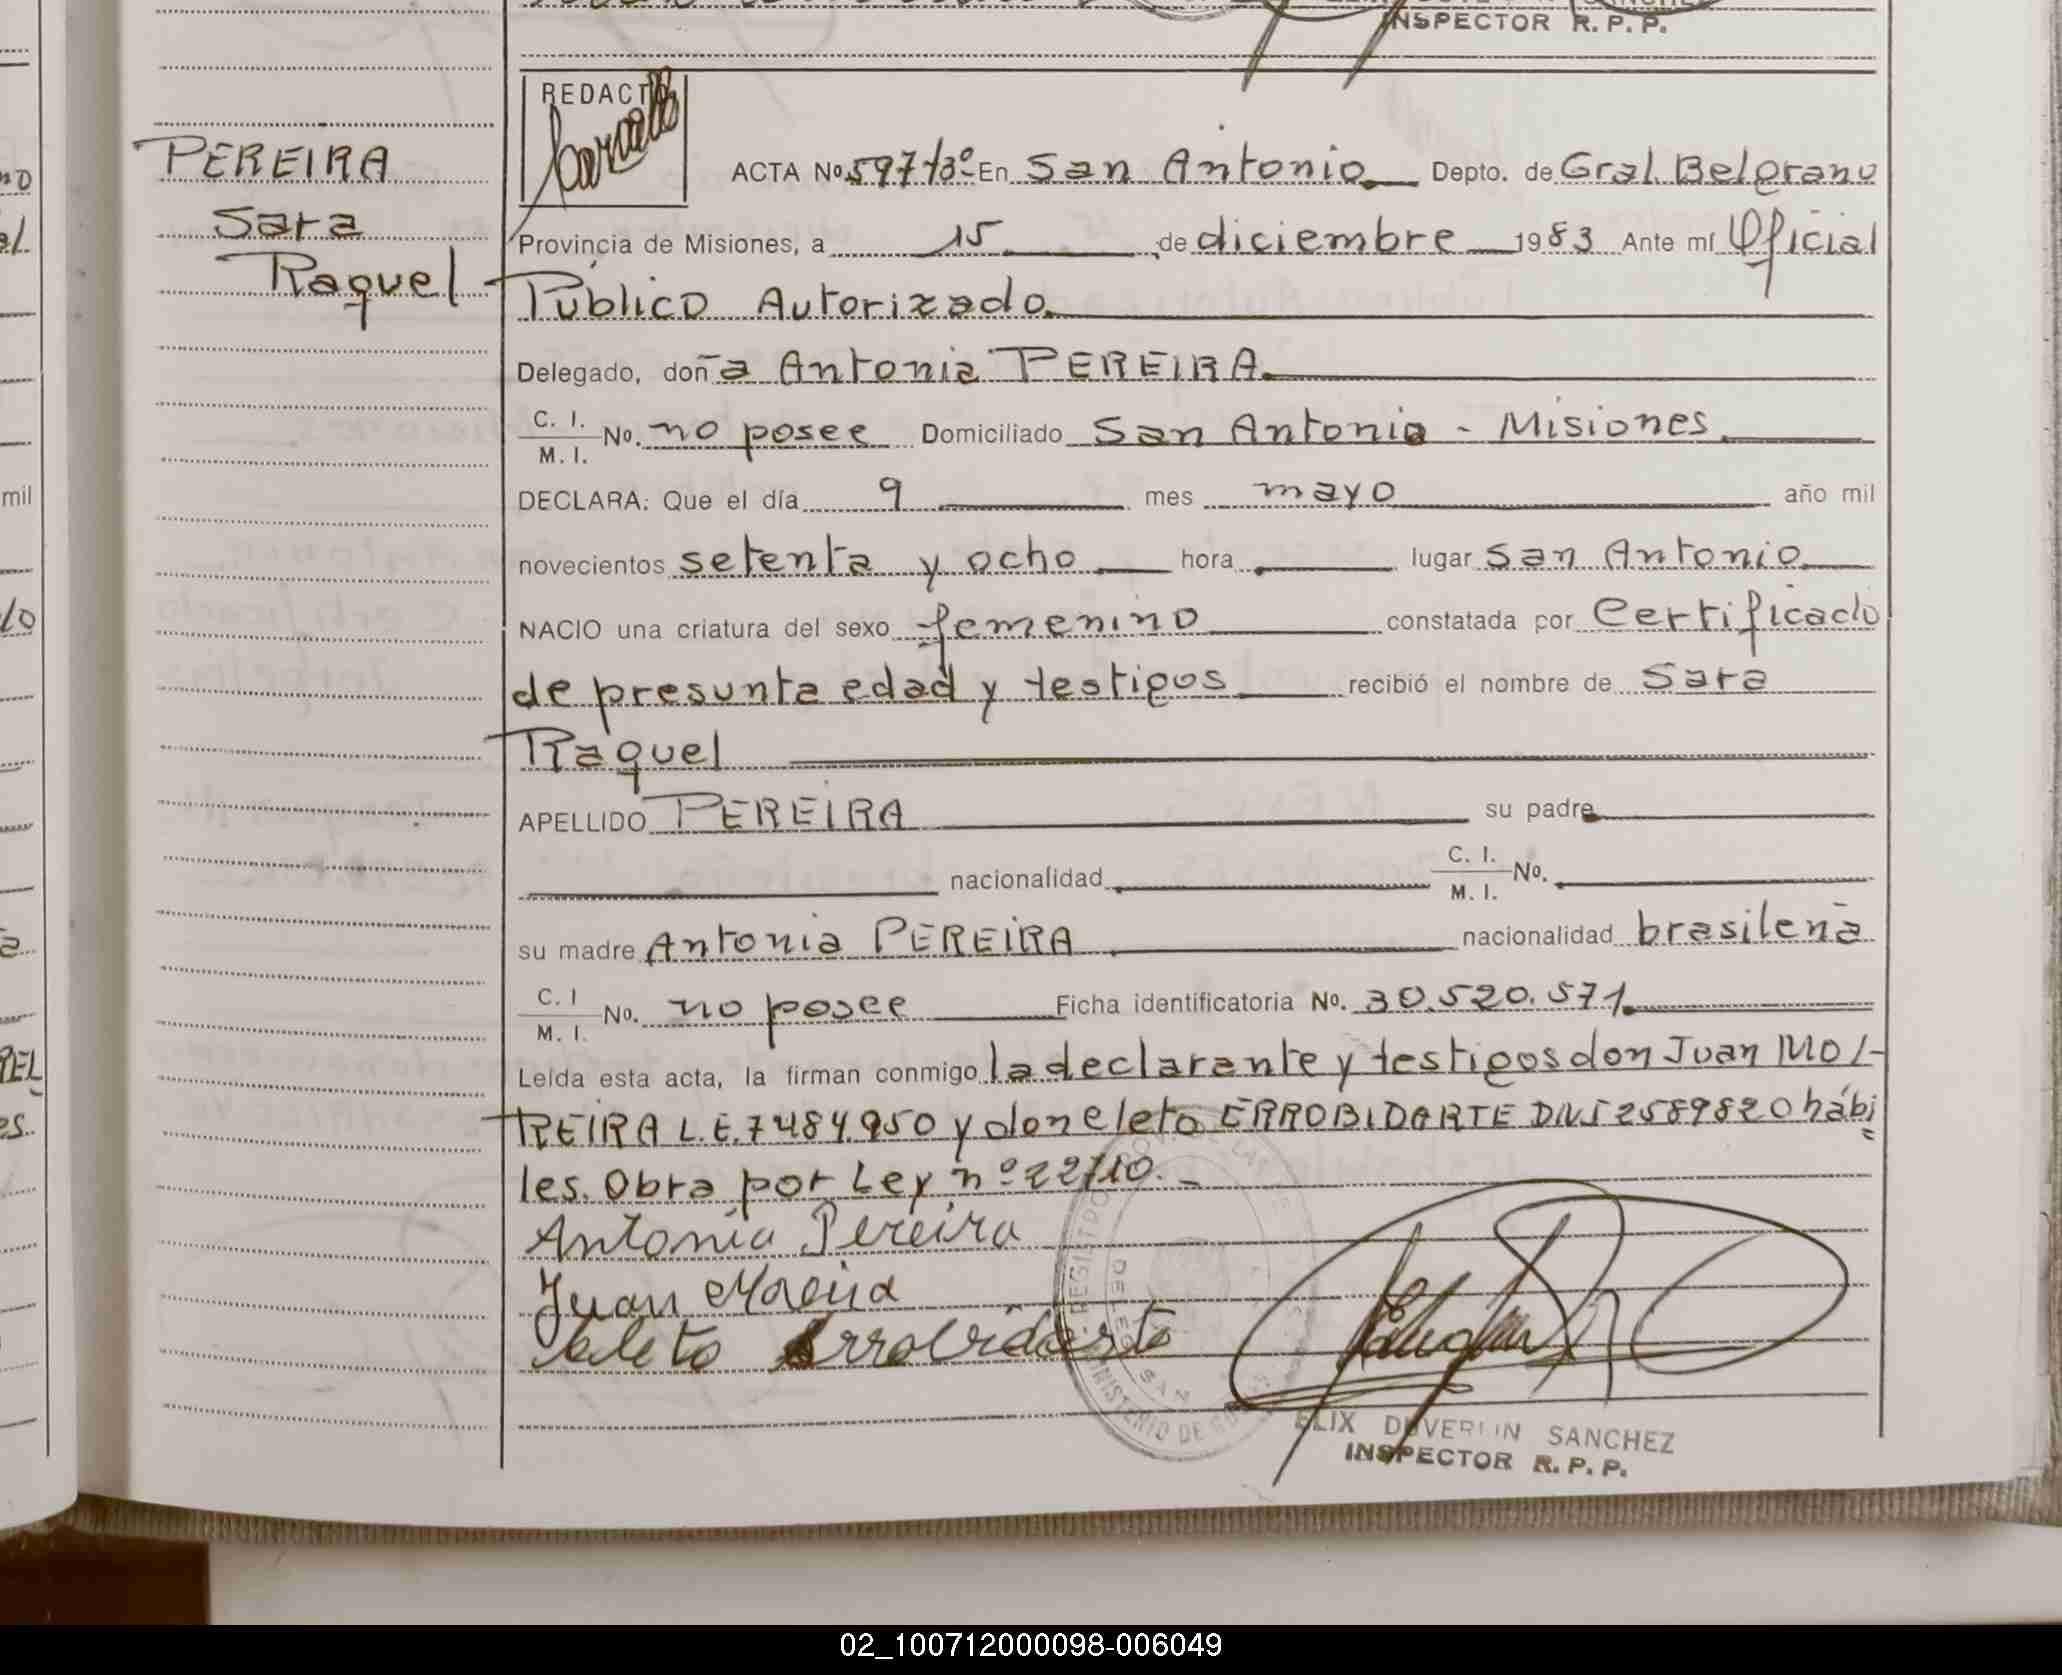 INSPECTOR R. P. P.
REDACTO
PEREIRA
Sara
Raquel
ACTA No. 597 T3º En San Antonio Depto. de Gral. Belgrano
Provincia de Misiones, a 15 de diciembre 1983 Ante mí Oficial
Público Autorizado.
Delegado, doña Antonia PEREIRA.
C. I.
M. I. No. no posee Domiciliado San Antonio - Misiones.
DECLARA: Que el día 9 mes mayo año mil
novecientos setenta y ocho hora lugar San Antonio
NACIO una criatura del sexo femenino constatada por Certificado
de presunta edad y testigos recibió el nombre de Sara
Raquel
APELLIDO PEREIRA su padre
nacionalidad C. I.
M. I. No.
su madre Antonia PEREIRA nacionalidad brasileña
C. I
M. I. No. no posee Ficha identificatoria No. 30.520.571.
Leída esta acta, la firman conmigo la declarante y testigos don Juan MO/-
REIRA L.E. 7484.950 y don eleto ERROBIDARTE DNI 2589820 hábi
les. Obra por Ley nº 22710.-
Antonia Pereira
Juan Moreira
eleto Errobidarte
REGISTRO
MINISTERIO DE
SAN
ELIX DUVERLIN SANCHEZ
INSPECTOR R. P. P.
mil
02_100712000098-006049